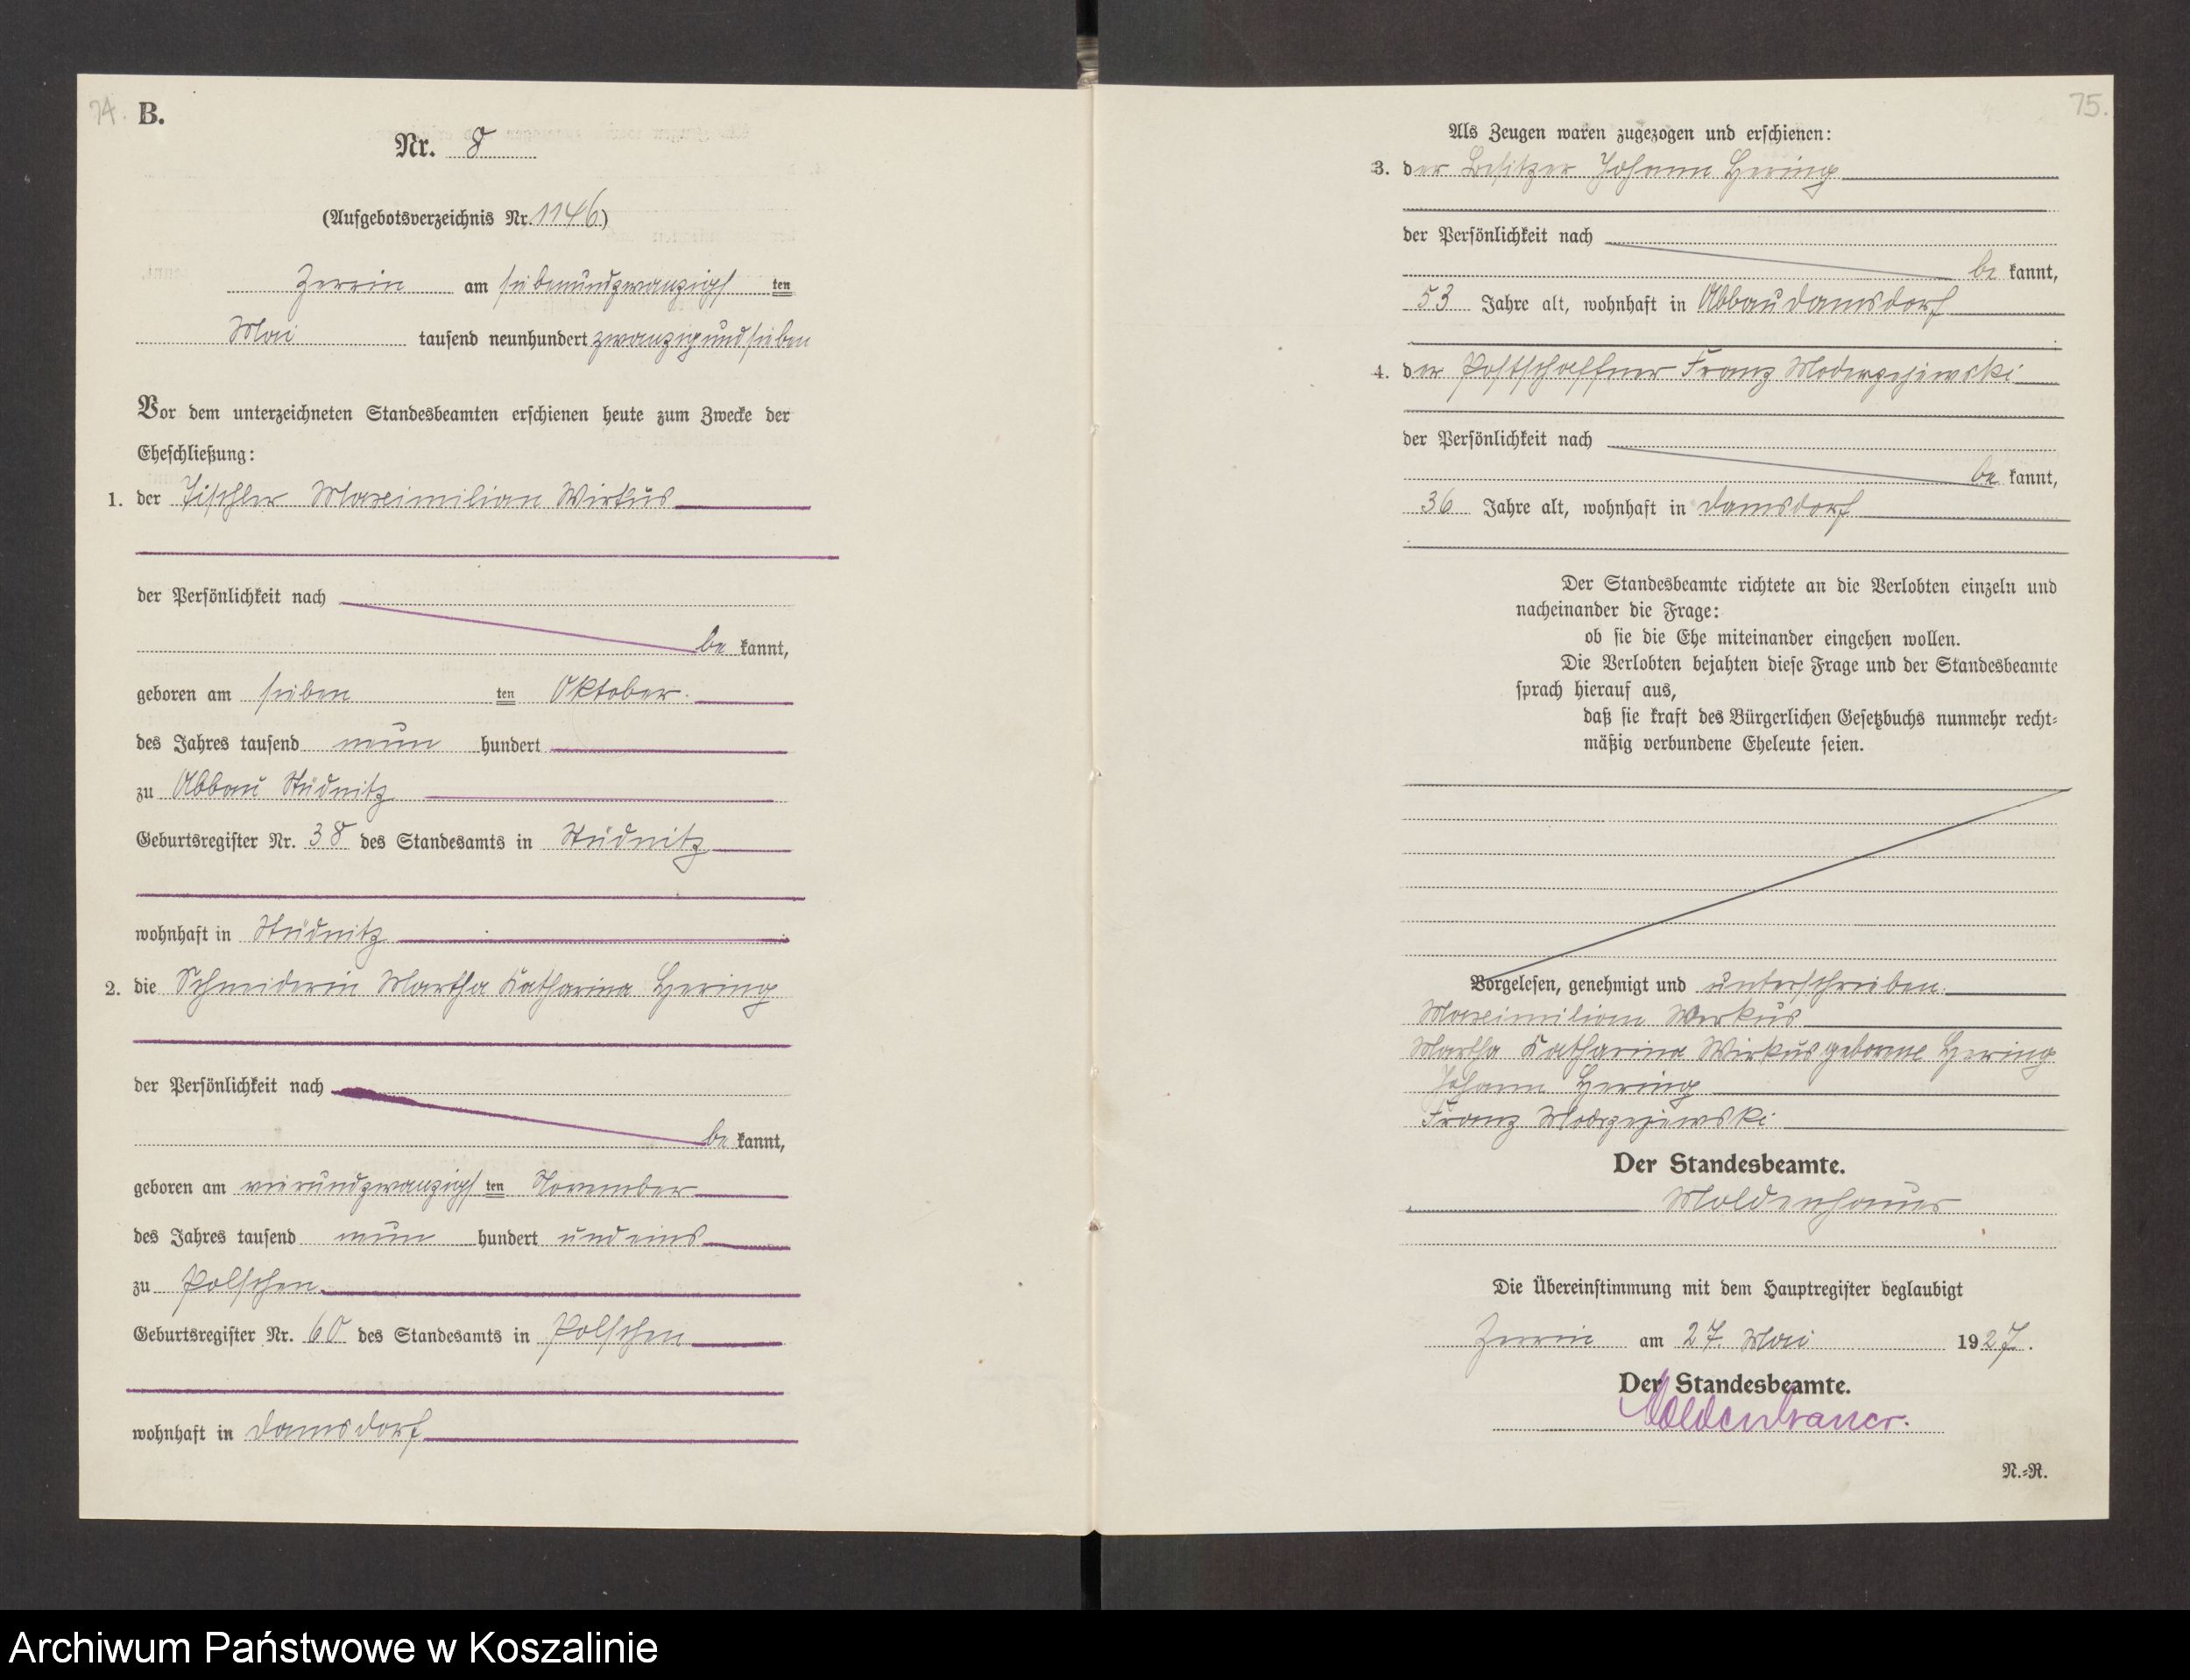 74.
B.
Nr. 8
(Aufgebotsverzeichnis Nr. 1146.)
Zerrin am siebenundzwanzigsten
Mai tausend neunhundert zwanzigundsieben
Vor dem unterzeichneten Standesbeamten erschienen heute zum Zwecke der
Eheschließung:
1. der Tischler Maximilian Wirkus
der Persönlichkeit nach
be kannt,
geboren am sieben ten Oktober.
des Jahres tausend neun hundert
zu Abbau Stüdnitz
Geburtsregister Nr. 38 des Standesamts in Stüdnitz
wohnhaft in Stüdnitz
2. die Schneiderin Martha Katharina Hering
der Persönlichkeit nach
be kannt,
geboren am vierundzwanzigsten November
des Jahres tausend neun hundert undeins
zu Polschen
Geburtsregister Nr. 60 des Standesamts in Polschen
wohnhaft in Damsdorf
75.
Als Zeugen waren zugezogen und erschienen:
3. der Besitzer Johann Hering
der Persönlichkeit nach
be kannt,
53 Jahre alt, wohnhaft in Abbau Damsdorf
4. der Postschaffner Franz Moderzejewski
der Persönlichkeit nach
be kannt,
36 Jahre alt, wohnhaft in Damsdorf
Der Standesbeamte richtete an die Verlobten einzeln und
nacheinander die Frage:
ob sie die Ehe miteinander eingehen wollen.
Die Verlobten bejahten diese Frage und der Standesbeamte
sprach hierauf aus,
daß sie kraft des Bürgerlichen Gesetzbuchs nunmehr recht-
mäßig verbundene Eheleute seien.
Vorgelesen, genehmigt und unterschrieben.
Maximilian Wirkus
Martha Katharina Wirkus geborene Hering
Johann Hering
Franz Modrzejewski
Der Standesbeamte.
Moldenhauer
Die Übereinstimmung mit dem Hauptregister beglaubigt
Zerrin am 27. Mai 1927.
Der Standesbeamte.
Moldenhauer.
N.-R.
Archiwum Państwowe w Koszalinie